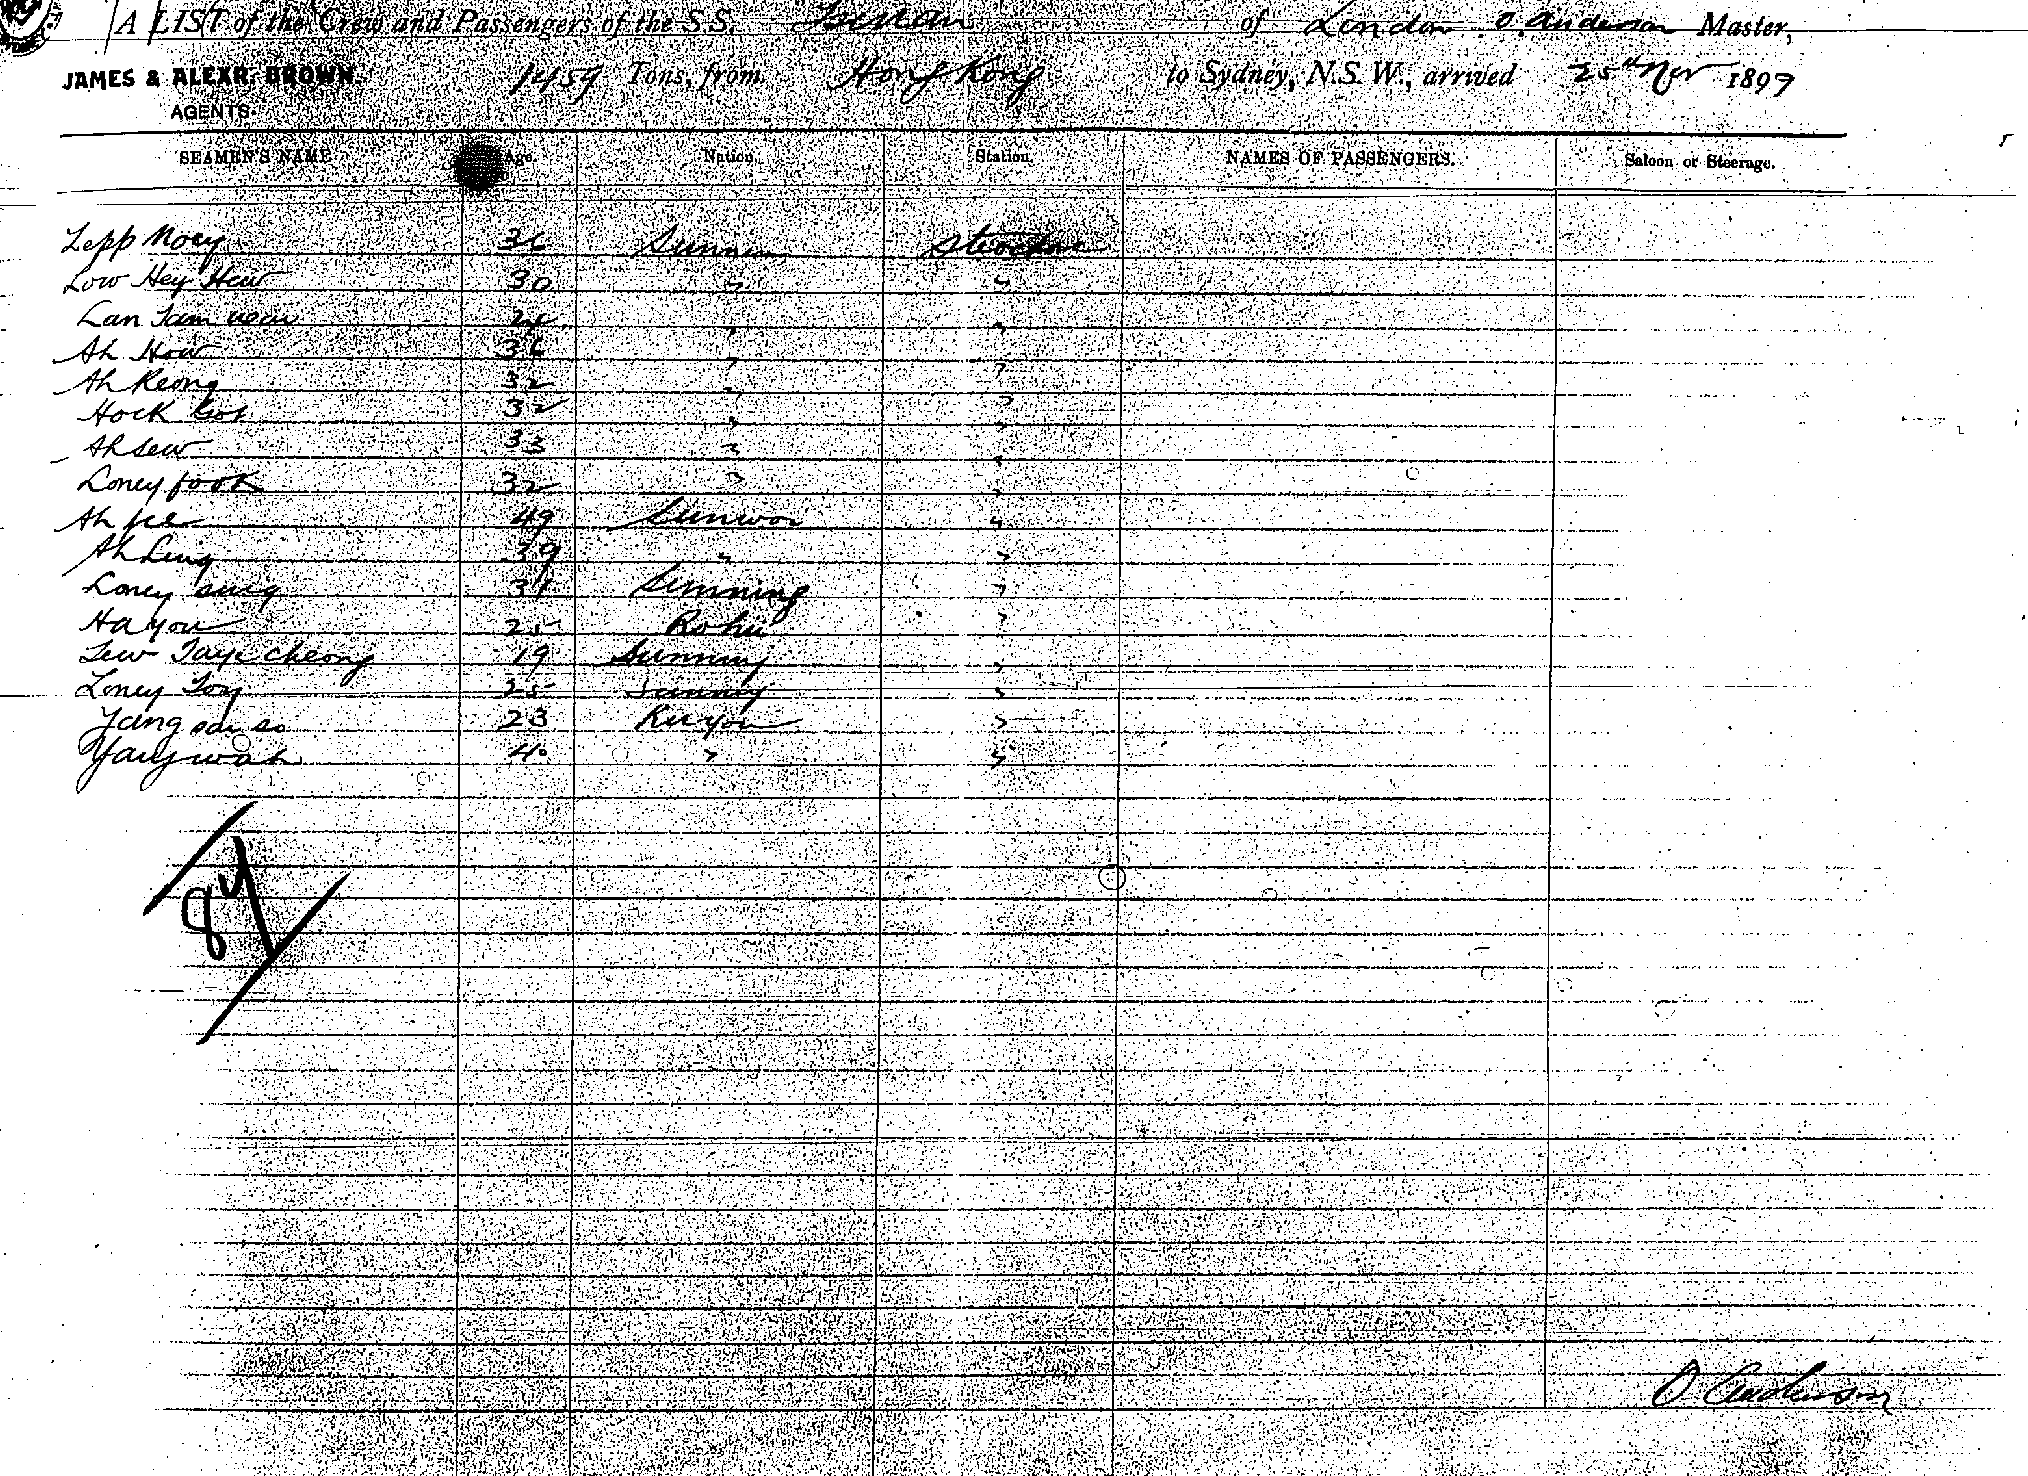 A LIST of the Crew and Passengers of the S.S. of London O. Anderson Master,
JAMES & ALEXR. BROWN, 1459 Tons, from Hong Kong to Sydney, N.S.W., arrived 25th Nov 1897
AGENTS.
SEAMEN'S NAME Age. Nation. Station. NAMES OF PASSENGERS. Saloon or Steerage.
Lepp Moey 36
Low Hey Hew 30 " "
Lan Tam " "
Ah How 36 " "
Ah Keong 32 " "
Hock 32 " "
Ah Sew 33 " "
Loney foot 32 " "
Ah fee 49 Sunwoi "
Ah Ling 39 " "
Loney sing 31 Sunning "
Ha you 25 "
Lew Taye Cheong 19 Sunning "
Loney Toy 25 Sunning "
Yang so 23 Kuyou "
Yang wah 40 " "
84
O Anderson